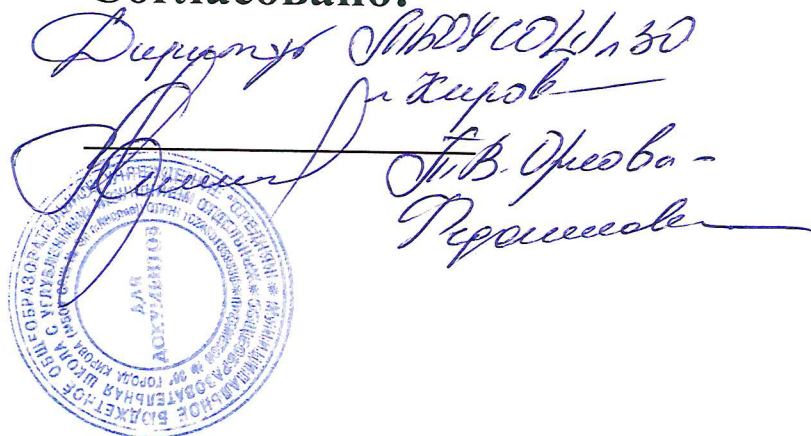 Согласовано:
Директор МБОУ СОШ №30
г. Киров
Т.В. Орлова-
МУНИЦИПАЛЬНОЕ БЮДЖЕТНОЕ ОБЩЕОБРАЗОВАТЕЛЬНОЕ УЧРЕЖДЕНИЕ "СРЕДНЯЯ
ОБЩЕОБРАЗОВАТЕЛЬНАЯ ШКОЛА С УГЛУБЛЕННЫМ ИЗУЧЕНИЕМ ОТДЕЛЬНЫХ
№ 30" ГОРОДА КИРОВА
ДЛЯ
ДОКУМЕНТОВ